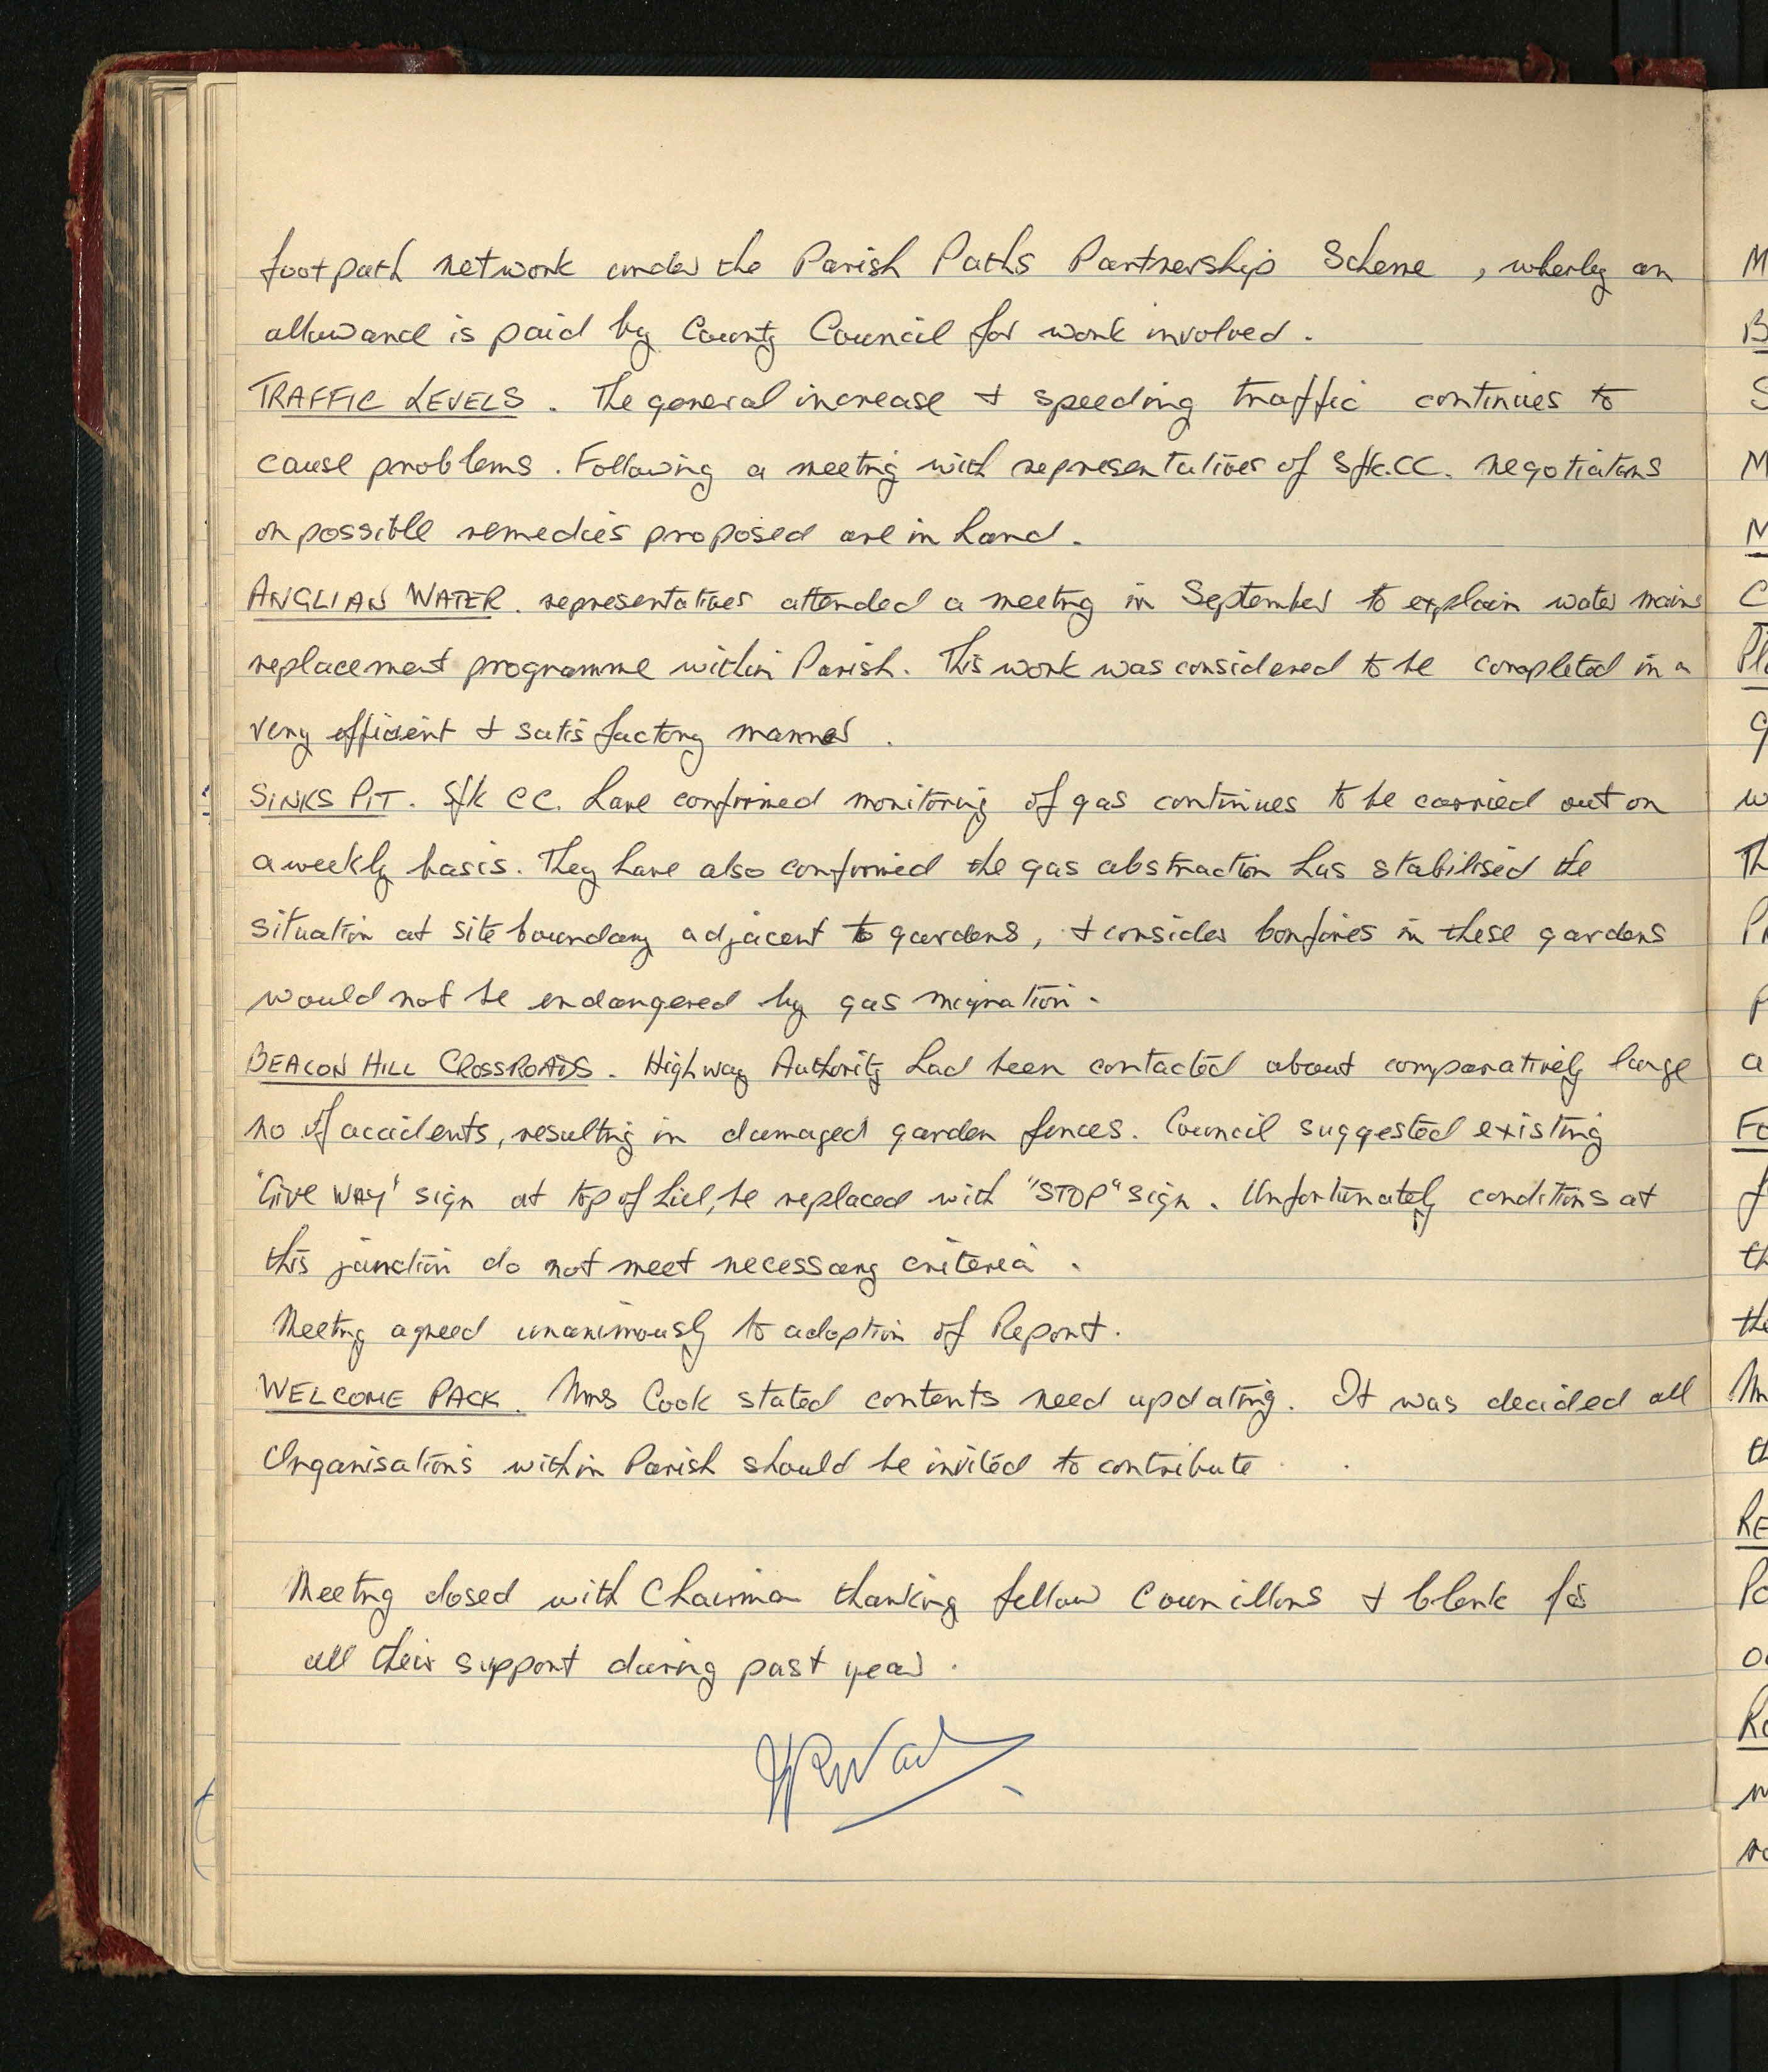 footpath network under the Parish Paths Partnership Scheme, wherby an
allowance is paid by County Council for work involved.
TRAFFIC LEVELS. The general increase & speeding traffic continues to
cause problems. Following a meeting with representatives of Sfk.CC. negotiations
on possible remedies proposed are in hand.
ANGLIAN WATER. representatives attended a meeting in September to explain water mains
replacement programme within Parish. This work was considered to be completed in a
very efficient & satisfactory manner.
SINKS PIT. Sfk CC. have confirmed monitoring of gas continues to be carried out on
a weekly basis. They have also confirmed the gas abstraction has stabilised the
situation at site boundary adjacent to gardens, & consider bonfires in these gardens
would not be endangered by gas migration.
BEACON HILL CROSSROADS. Highway Authority had been contacted about comparatively large
no of accidents, resulting in damaged garden fences. Council suggested existing
'Give WAY' sign at top of hill, be replaced with "STOP" sign. Unfortunately conditions at
this junction do not meet necessary criteria.
Meeting agreed unanimously to adoption of Report.
WELCOME PACK. Mrs Cook stated contents need updating. It was decided all
Organisations within Parish should be invited to contribute.
Meeting closed with Chairman thanking fellow Councillors & Clerk for
all their support during past year.